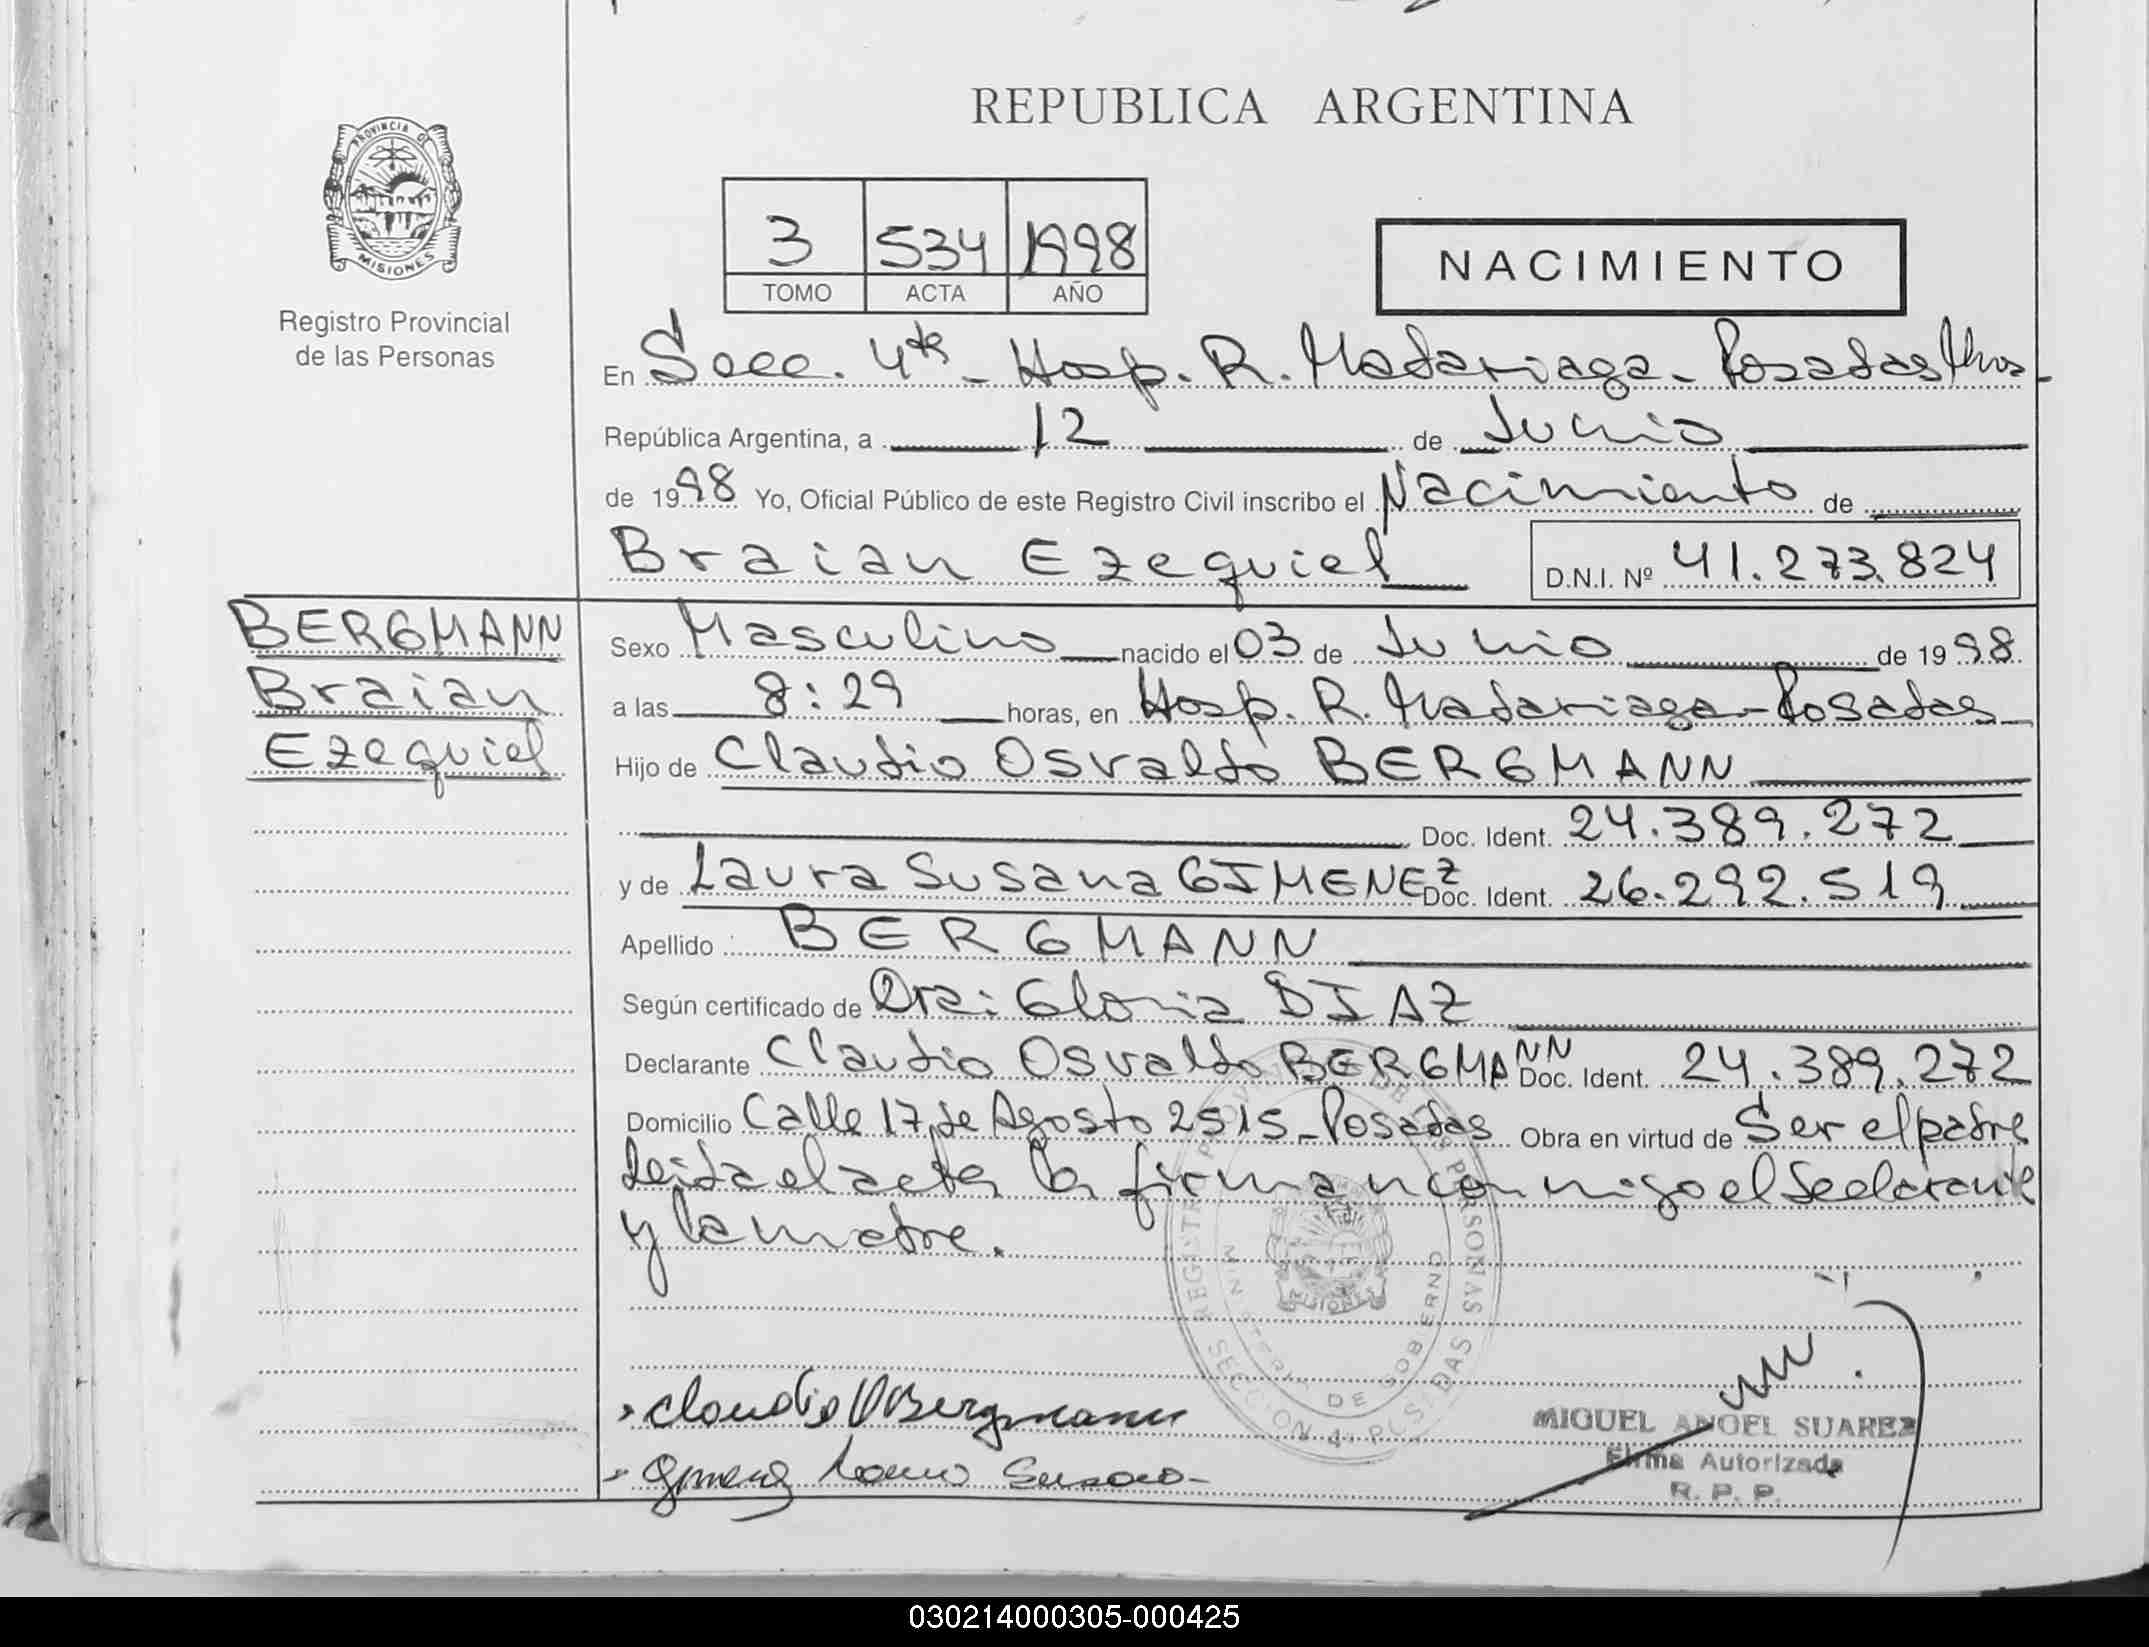 REPUBLICA ARGENTINA
PROVINCIA DE
MISIONES
Registro Provincial
de las Personas
3 534 1998
TOMO ACTA AÑO
NACIMIENTO
En Secc. 4ta - Hosp. R. Madariaga - Posadas Mnes -
República Argentina, a 12 de Junio
de 1998 Yo, Oficial Público de este Registro Civil inscribo el Nacimiento de
Braian Ezequiel D.N.I. Nº 41.273.824
BERGMANN
Braian
Ezequiel
Sexo Masculino nacido el 03 de Junio de 1998
a las 8:29 horas, en Hosp. R. Madariaga - Posadas
Hijo de Claudio Osvaldo BERGMANN
Doc. Ident. 24.389.272
y de Laura Susana GIMENEZ Doc. Ident. 26.292.519
Apellido BERGMANN
Según certificado de Dra: Gloria DIAZ
Declarante Claudio Osvaldo BERGMANN Doc. Ident. 24.389.272
Domicilio Calle 17 de Agosto 2515 - Posadas Obra en virtud de Ser el padre
Leida el acta la firman conmigo el declarante
y la madre.
REGISTRO PROVINCIAL DE LAS PERSONAS
MINISTERIO DE GOBIERNO
MISIONES
SECCION 4ª POSADAS
Claudio O Bergmann
Gimenez Laura Susana -
MIGUEL ANGEL SUAREZ
Firma Autorizada
R. P. P.
030214000305-000425